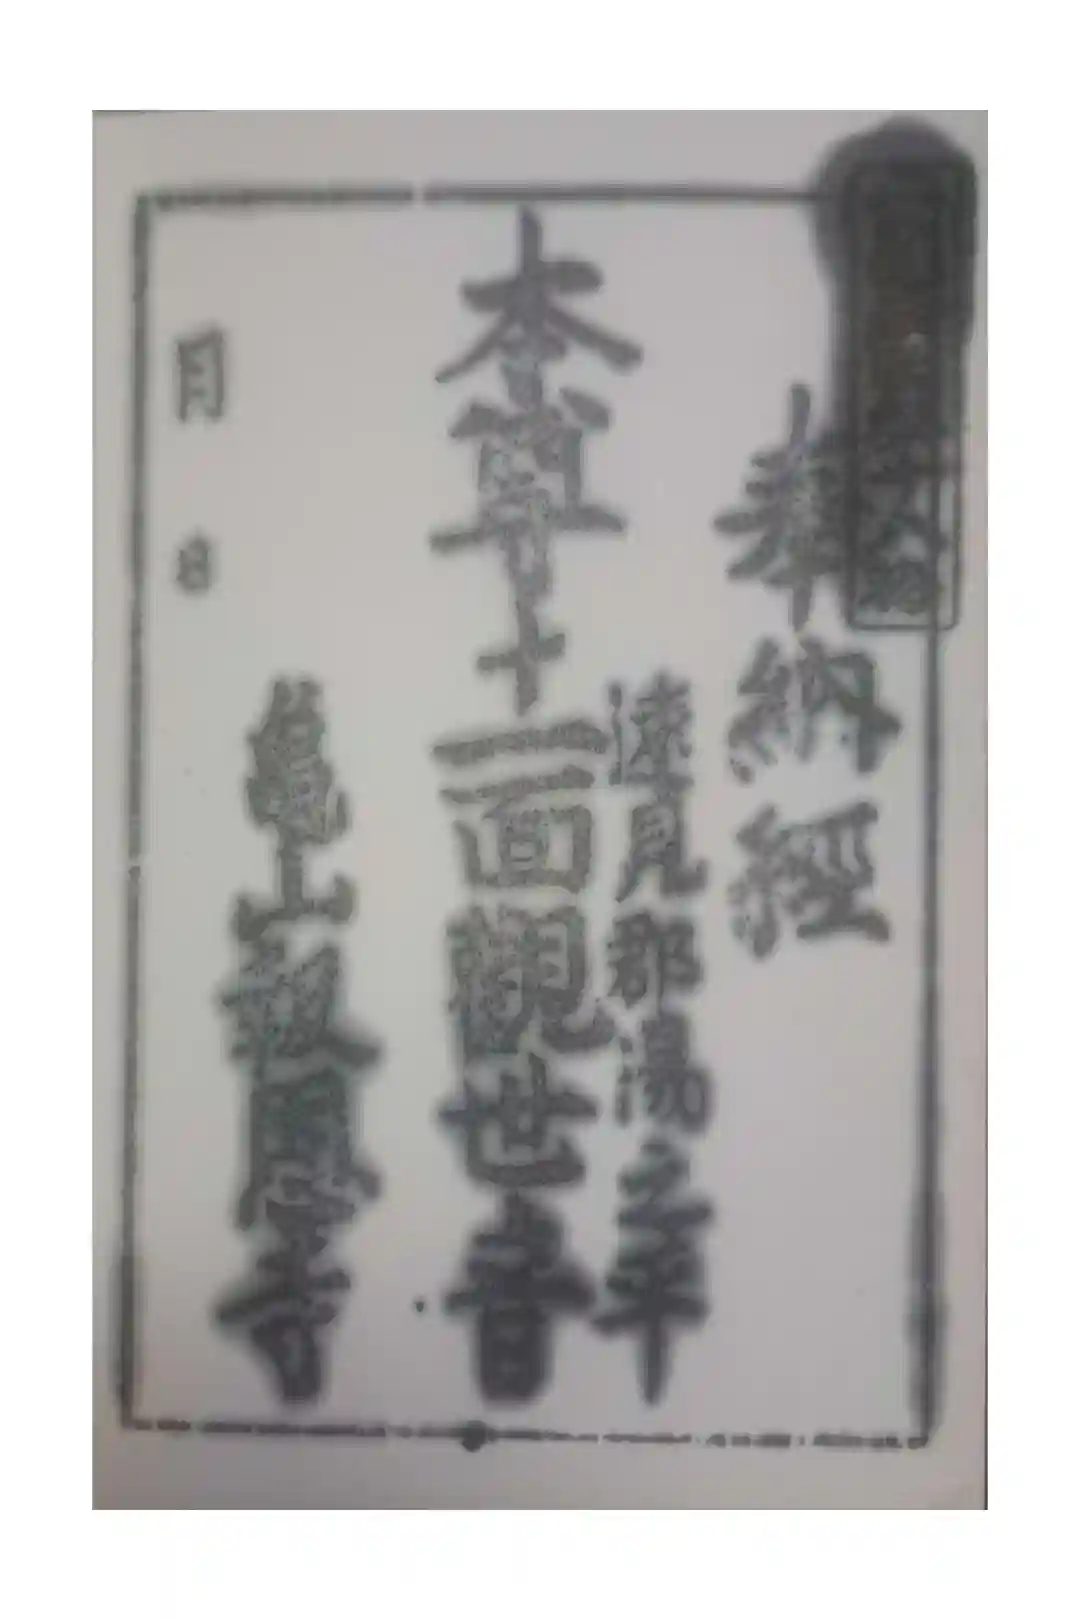 奉納經
速見郡湯之平
本尊十一面觀世音
龜山報國寺
月 日